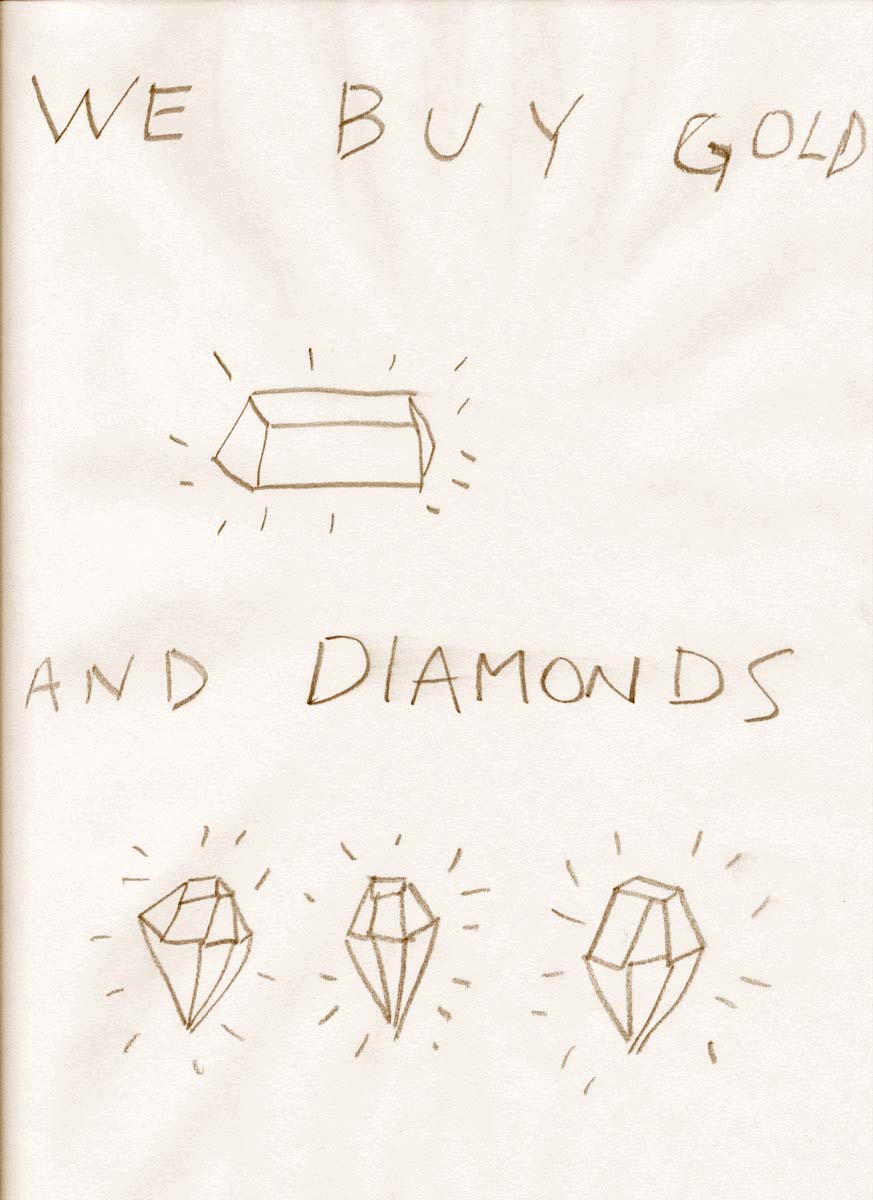 WE BUY GOLD
AND DIAMONDS